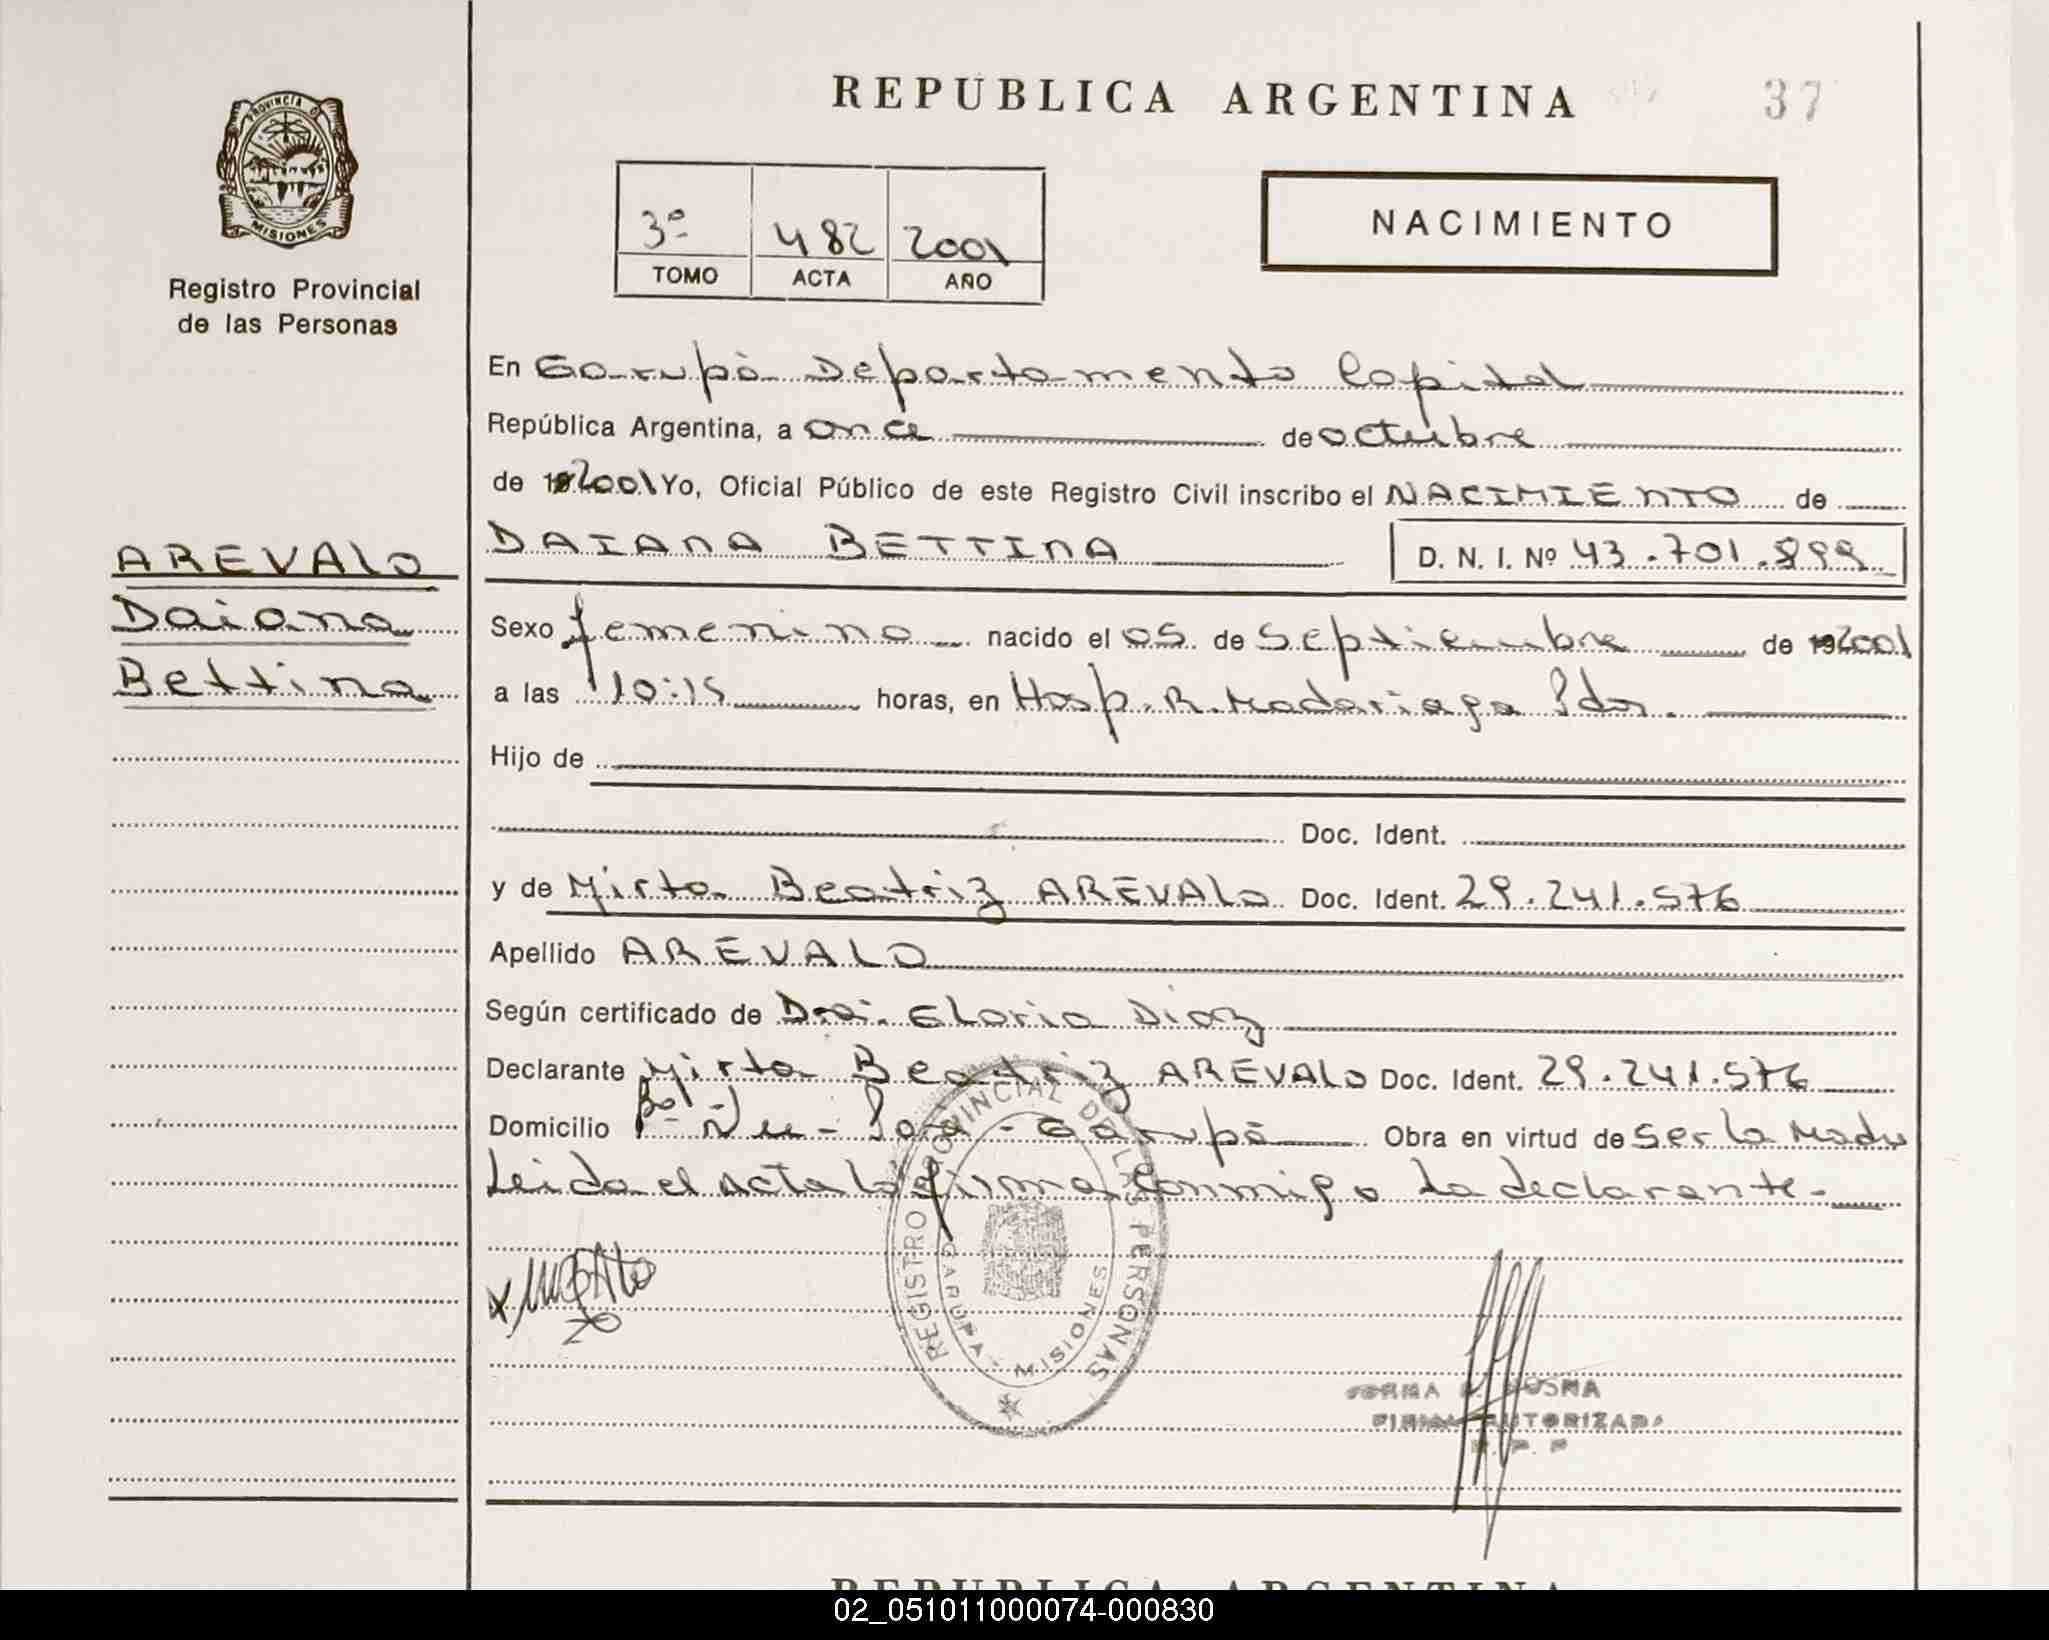 REPUBLICA ARGENTINA
37
PROVINCIA D
MISIONES
Registro Provincial
de las Personas
3º 482 2001
TOMO ACTA AÑO
NACIMIENTO
En Garupà Departamento Capital
República Argentina, a once de octubre
de 192001 Yo, Oficial Público de este Registro Civil inscribo el NACIMIENTO de
DAIANA BETTINA D. N. I. Nº 43.701.899
AREVALO
Daiana
Bettina
Sexo femenino nacido el 05 de Septiembre de 192001
a las 10:15 horas, en Hosp. R. Madariaga Pdas.
Hijo de
Doc. Ident.
y de Mirta Beatriz AREVALO Doc. Ident. 29.241.576
Apellido AREVALO
Según certificado de Dra. Gloria Diaz
Declarante Mirta Beatriz AREVALO Doc. Ident. 29.241.576
Domicilio Bº Ñu - Pora - Garupà Obra en virtud de Ser la Madre
Leida el acta la firma conmigo la declarante.
REGISTRO PROVINCIAL DE LAS PERSONAS
GARUPA - MISIONES
FIRMA AUTORIZADA
REPUBLICA ARGENTINA
02_051011000074-000830